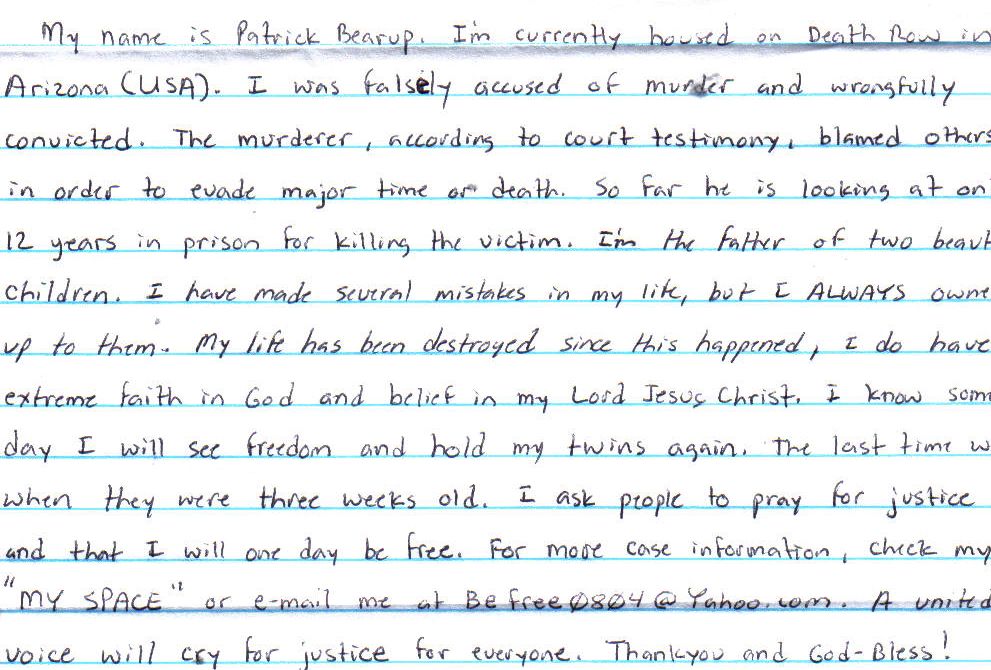 My name is Patrick Bearup. I'm currently housed on Death Row in
Arizona (USA). I was falsely accused of murder and wrongfully
convicted. The murderer, according to court testimony, blamed others
in order to evade major time or death. So far he is looking at on
12 years in prison for killing the victim. I'm the father of two beaut
children. I have made several mistakes in my life, but I ALWAYS owne
up to them. My life has been destroyed since this happened, I do have
extreme faith in God and belief in my Lord Jesus Christ. I know som
day I will see freedom and hold my twins again. The last time w
when they were three weeks old. I ask people to pray for justice
and that I will one day be free. For more case information, check my
"MY SPACE" or e-mail me at Befree0804@Yahoo.com. A united
voice will cry for justice for everyone. Thankyou and God-Bless!